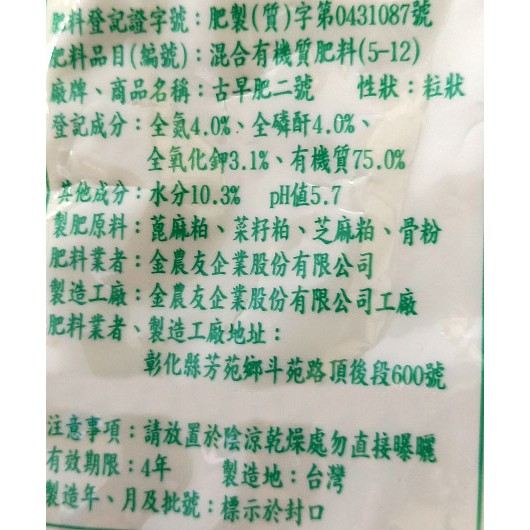 肥料登記證字號：肥製(質)字第0431087號
肥料品目(編號)：混合有機質肥料(5-12)
廠牌、商品名稱：古早肥二號　性狀：粒狀
登記成分：全氮4.0%、全磷酐4.0%、
全氧化鉀3.1%、有機質75.0%
其他成分：水分10.3%　pH值5.7
製肥原料：蓖麻粕、菜籽粕、芝麻粕、骨粉
肥料業者：金農友企業股份有限公司
製造工廠：金農友企業股份有限公司工廠
肥料業者、製造工廠地址：
彰化縣芳苑鄉斗苑路頂後段600號
注意事項：請放置於陰涼乾燥處勿直接曝曬
有效期限：4年　製造地：台灣
製造年、月及批號：標示於封口